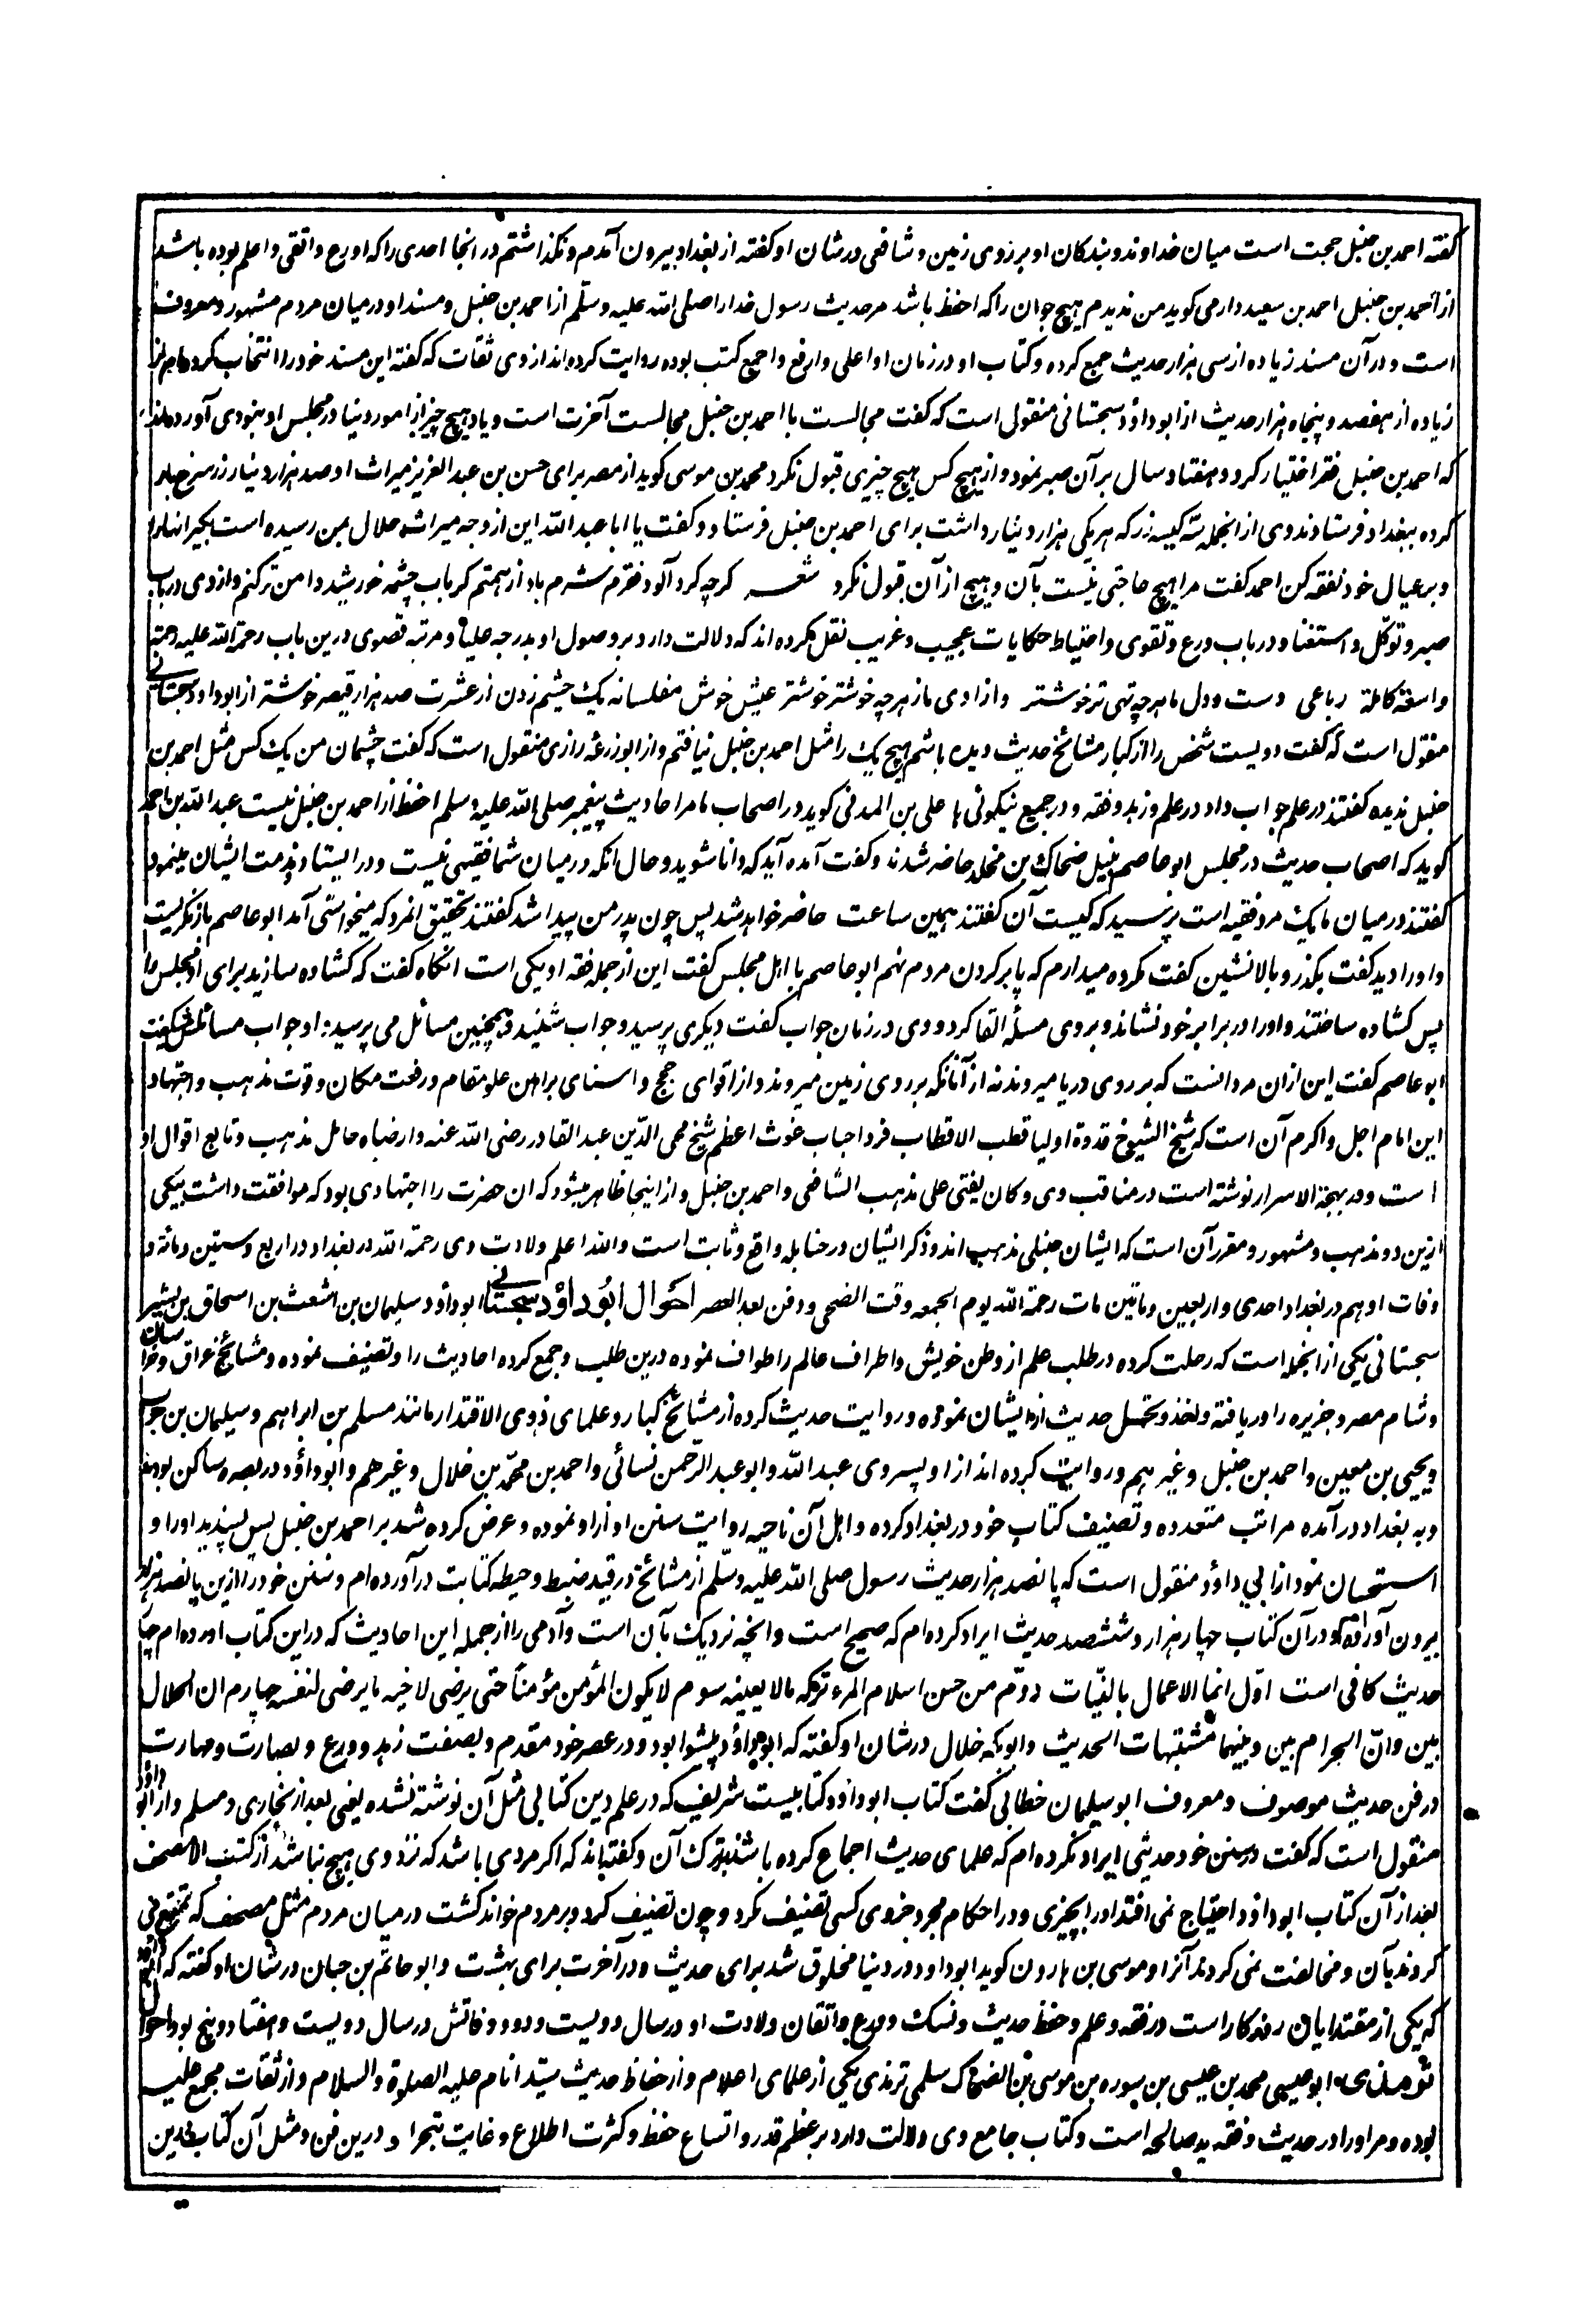 گفته احمد بن حنبل حجت است میان خداوند و بندگان او بر روی زمین و شافعی در شان او گفته از بغداد بیرون آمدم و نگذاشتم در انجا احدی را که اورع و اتقی و اعلم بوده باشد
از احمد بن حنبل احمد بن سعید دارمی گوید من ندیدم هیچ جوان را که احفظ باشد مر حدیث رسول خدا را صلی الله علیه وسلم از احمد بن حنبل و مسند او در میان مردم مشهور و معروف
است و در آن مسند زیاده از سی هزار حدیث جمع کرده و کتاب او در زمان او اعلی و ارفع و اجمع کتب بوده روایت کرده اند از وی ثقات که گفته این مسند خود را انتخاب کرده ام از
زیاده از هفصد و پنجاه هزار حدیث از ابو داؤد سجستانی منقول است که گفت مجالست با احمد بن حنبل مجالست آخرت است و یاد هیچ چیز از امور دنیا در مجلس او نبودی آورده اند
که احمد بن حنبل فقر اختیار کرد و هفتاد سال بر آن صبر نمود و از هیچ کس هیچ چیزی قبول نکرد محمد بن موسی گوید از مصر برای حسن بن عبد العزیز میراث او صد هزار دینار زر سرخ بار
کرده ببغداد فرستادند وی از انجمله سه کیسه زر که هر یکی هزار دینار داشت برای احمد بن حنبل فرستاد و گفت یا ابا عبد الله این از وجه میراث حلال بمن رسیده است بگیر انها را
و بر عیال خود نفقه کن احمد گفت مرا هیچ حاجتی نیست بآن و هیچ از آن قبول نکرد شعر گرچه گرد آلود فقرم شرم باد از همتم گر باب چشمه خورشید دامن تر کنم و از وی در باب
صبر و توکل و استغنا و در باب ورع و تقوی و احتیاط حکایات عجیب و غریب نقل کرده اند که دلالت دارد بر وصول او بدرجه علیا و مرتبه قصوی درین باب رحمة الله علیه رحمة
واسعة کاملة رباعی دست و دل ما هر چه تهی تر خوشتر و ازادی ما ز هر چه خوشتر خوشتر عیش خوش مفلسانه یک چشم زدن از عشرت صد هزار قیصر خوشتر از ابو داود سجستانی
منقول است که گفت دویست شخص را از کبار مشائخ حدیث دیده باشم هیچ یک را مثل احمد بن حنبل نیافتم و از ابو زرعه رازی منقول است که گفت چشمان من یک کس مثل احمد بن
حنبل ندیده گفتند در علم جواب داد در علم و زهد و فقه و در جمیع نیکوئی ها علی بن المدنی گوید در اصحاب ما مر احادیث پیغمبر صلی الله علیه وسلم احفظ از احمد بن حنبل نیست عبد الله بن احمد
گوید که اصحاب حدیث در مجلس ابو عاصم نبیل ضحاک بن مخلد حاضر شدند و گفت آمده آید که دانا شوید و حال انکه در میان شما فقیهی نیست و در ایستاد و بذمت ایشان مینمود
گفتند در میان ما یک مرد فقیه است پرسید که کیست آن گفتند همین ساعت حاضر خواهد شد پس چون پدر من پیدا شد گفتند تحقیق انمرد که میخواستی آمد ابو عاصم باز نگریست
و او را دید گفت بگذر و بالا نشین گفت مکروه میدارم که پا بر گردن مردم نهم ابو عاصم با اهل مجلس گفت این از جمله فقه او یکی است انگاه گفت که گشاده سازید برای او مجلس را
پس گشاده ساختند و او را در برابر خود نشاند و بر وی مسئله القا کرد و وی در زمان جواب گفت دیگری پرسید و جواب شنید و همچنین مسائل می پرسید و او جواب مسائلش میگفت
ابو عاصم گفت این ازان مردانست که بر روی دریا میروند نه از آنانکه بر روی زمین میروند و از اقوای حجج و اسنای براهین علو مقام و رفعت مکان و قوت مذهب و اجتهاد
این امام اجل و اکرم آن است که شیخ الشیوخ قدوة اولیا قطب الاقطاب فرد احباب غوث اعظم شیخ محی الدین عبد القادر رضی الله عنه وارضاه حامل مذهب و تابع اقوال او
است و در بهجة الاسرار نوشته است در مناقب وی و کان یفتی علی مذهب الشافعی و احمد بن حنبل و از اینجا ظاهر میشود که ان حضرت را اجتهادی بود که موافقت داشت بیکی
ازین دو مذهب و مشهور و مقرر آن است که ایشان حنبلی مذهب اند و ذکر ایشان در حنابله واقع و ثابت است والله اعلم ولادت وی رحمة الله در بغداد در اربع و ستین و مائة و
وفات او هم در بغداد احدی و اربعین و ماتین مات رحمة الله یوم الجمعه وقت الضحی و دفن بعد العصر احوال ابو داؤد سجستانی ابو داؤد سلیمان بن اشعث بن اسحاق بن بشیر
سجستانی یکی از انجمله است که رحلت کرده در طلب علم از وطن خویش و اطراف عالم را طواف نموده درین طلب و جمع کرده احادیث را و تصنیف نموده و مشائخ عراق و خراسان
و شام مصر و جزیره را دریافته و اخذ و تحمل حدیث از ایشان نموده و روایت حدیث کرده از مشائخ کبار و علمای ذوی الاقتدار مانند مسلم بن ابراهیم و سلیمان بن حرب
و یحیی بن معین و احمد بن حنبل و غیرهم و روایت کرده اند از او پسر وی عبد الله و ابو عبد الرحمن نسائی و احمد بن محمد بن خلال و غیرهم و ابو داؤد در بصره ساکن بوده
و به بغداد در آمده مراتب متعدده و تصنیف کتاب خود در بغداد کرده و اهل آن ناحیه روایت سنن او ازو نموده و عرض کرده شد بر احمد بن حنبل پس پسندید او را و
استحسان نمود از ابی داؤد منقول است که پانصد هزار حدیث رسول صلی الله علیه وسلم از مشائخ در قید ضبط و حیطه کتابت در آورده ام و سنن خود را ازین پانصد هزار
بیرون آورده و در آن کتاب چهار هزار و ششصد حدیث ایراد کرده ام که صحیح است و انچه نزدیک بآن است و آدمی را از جمله این احادیث که در این کتاب اورده ام چهار
حدیث کافی است اول انما الاعمال بالنیات دوم من حسن اسلام المرء ترکه مالا یعنیه سوم لا یکون المؤمن مؤمناً حتی یرضی لاخیه ما یرضی لنفسه چهارم ان الحلال
بین وان الحرام بین و بینهما مشتبهات الحدیث و ابو بکر خلال در شان او گفته که ابو داؤد پیشوا بود و در عصر خود مقدم و بصفت زهد و ورع و بصارت و مهارت
در فن حدیث موصوف و معروف ابو سلیمان خطابی گفت کتاب ابو داؤد کتابیست شریف که در علم دین کتابی مثل آن نوشته نشده یعنی بعد از بخاری و مسلم و از ابو داؤد
منقول است که گفت در سنن خود حدیثی ایراد نکرده ام که علمای حدیث اجماع کرده باشند بترک آن و گفته اند که اگر مردی باشد که نزد وی هیچ نباشد از کتب الا مصحف
بعد از آن کتاب ابو داؤد احتیاج نمی افتد او را بچیزی و در احکام مجرد جزوی کسی تصنیف نکرد و چون تصنیف کرد و بر مردم خواند گشت در میان مردم مثل مصحف که تمتع می
کردند بآن و مخالفت نمی کردند آنرا و موسی بن هارون گوید ابو داود در دنیا مخلوق شد برای حدیث و در آخرت برای بهشت و ابو حاتم بن حبان در شان او گفته که
که یکی از مقتدایان روزگار است در فقه و علم و حفظ حدیث و نسک و ورع و اتقان ولادت او در سال دویست و دو و وفاتش در سال دویست و هفتاد و پنج بود احوال
ترمذی ابو عیسی محمد بن عیسی بن سوره بن موسی بن الضحاک سلمی ترمذی یکی از علمای اعلام و از حفاظ حدیث سید انام علیه الصلوة والسلام و از ثقات مجمع علیه
بوده و مر او را در حدیث و فقه ید صالحه است و کتاب جامع وی دلالت دارد بر عظم قدر و اتساع حفظ و کثرت اطلاع و غایت تبحر او درین فن و مثل آن کتاب درین